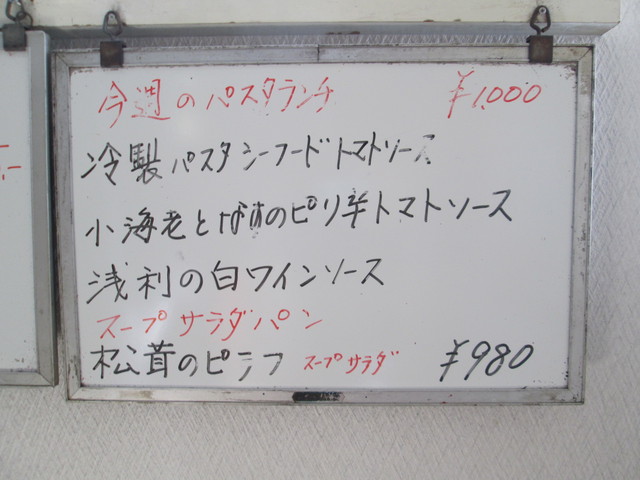 今週のパスタランチ ¥1,000
冷製パスタシーフードトマトソース
小海老となすのピリ辛トマトソース
浅利の白ワインソース
スープサラダパン
松茸のピラフ スープサラダ ¥980